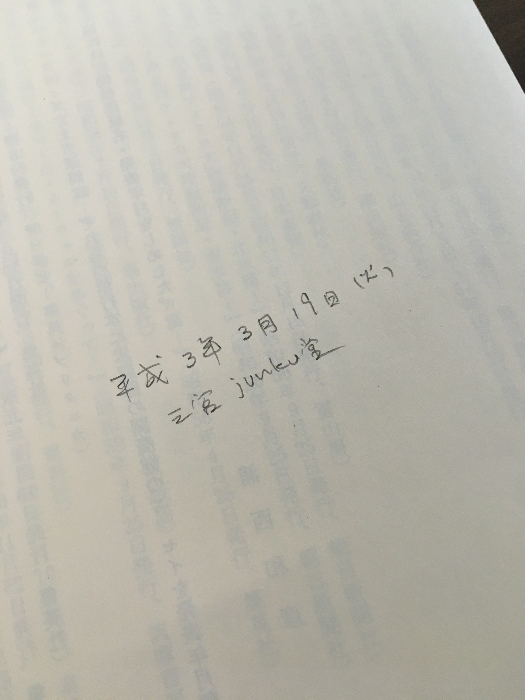 平成3年3月19日(火)
三宮 junku堂